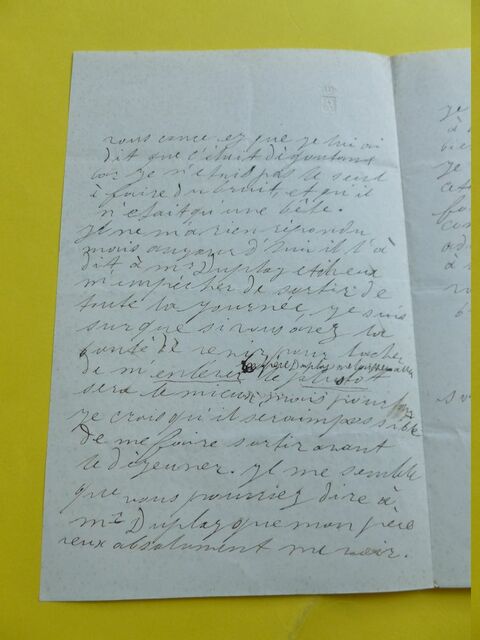 vous concevez que je lui ai
dit que c'était dégoutant
car je n'étais pas le seul
à faire du bruit, et qu'il
n'était qu'une bête.
Il ne m'a rien répondu
mais aujourd'hui il l'a
dit à Mr Duplay et il veux
m'empêcher de sortir de
toute la journée, je suis
sur que si vous avez la
bonté de venir pour tacher
de m'enlever le plutot
sera le mieux mais
je crois qu'il sera impossible
de me faire sortir avant
le déjeuner. Il me semble
que vous pourriez dire à
Mr Duplay que mon père
veux absolument me voir.